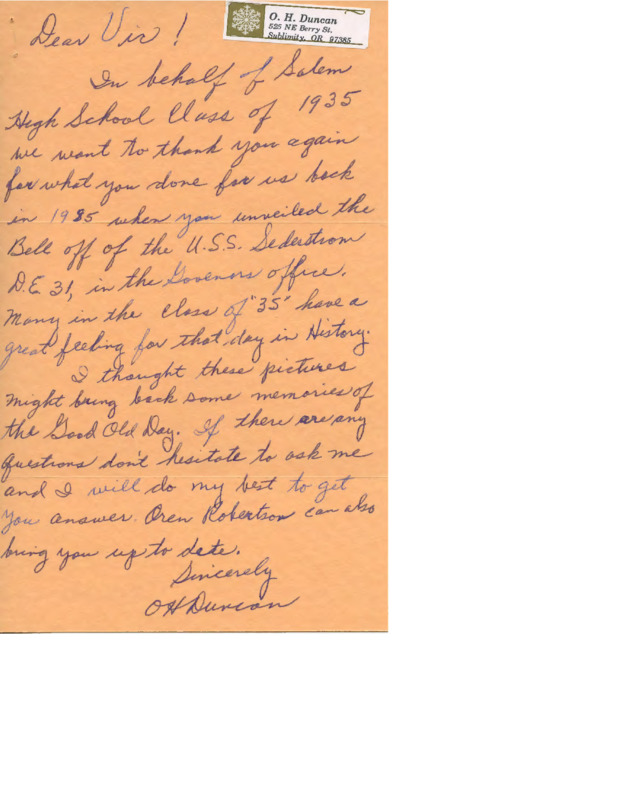 O. H. Duncan
525 NE Berry St.
Sublimity, OR 97385
Dear Vic!
In behalf of Salem
High School Class of 1935
we want to thank you again
for what you done for us back
in 1985 when you unveiled the
Bell off of the U.S.S. Sederstrom
D.E 31, in the Govenors office.
Many in the class of "35" have a
great feeling for that day in History.
I thought these pictures
might bring back some memories of
the Good Old Day. If there are any
questions don't hesitate to ask me
and I will do my best to get
you answer. Oren Robertson can also
bring you up to date.
Sincerely
OH Duncan